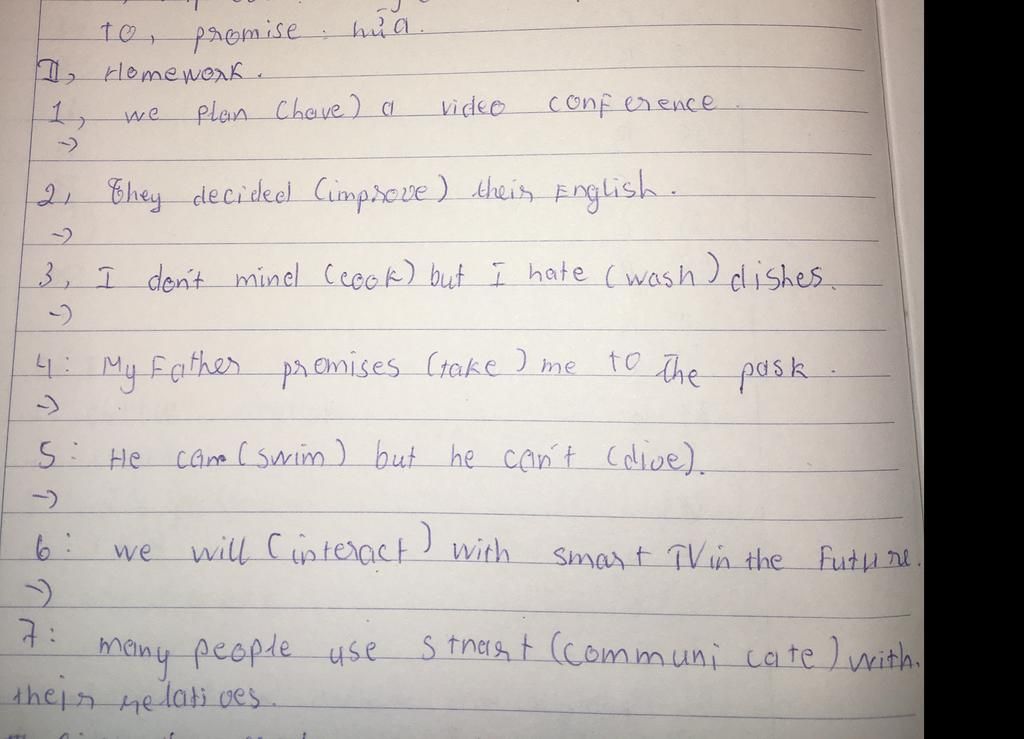 to, promise : hứa.
II, Homework.
1, we plan (have) a video conference.
->
2, They decided (improve) their English.
->
3, I don't mind (cook) but I hate (wash) dishes.
->
4: My Father promises (take) me to The park.
->
5: He can (swim) but he can't (dive).
->
6: we will (interact) with smart TV in the Future.
->
7: many people use Smart (communi cate) with
their relatives.